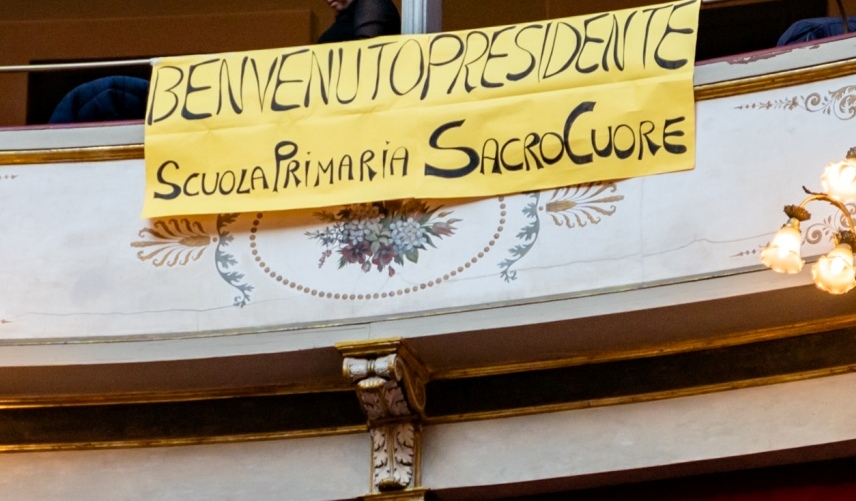 BENVENUTO PRESIDENTE
SCUOLA PRIMARIA SACRO CUORE